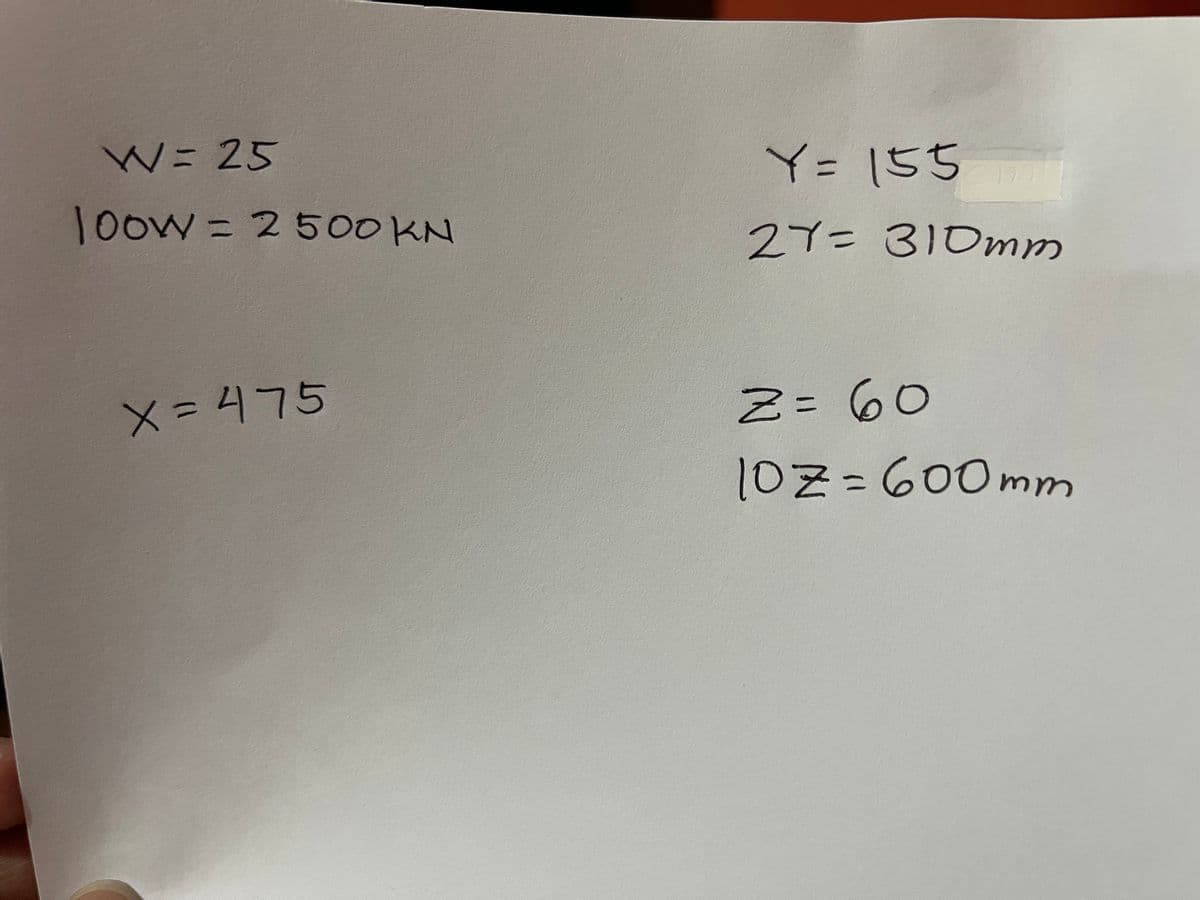 W= 25
100W = 2500KN
X=475
Y= 155
2Y= 310mm
Z= 60
10Z=600mm